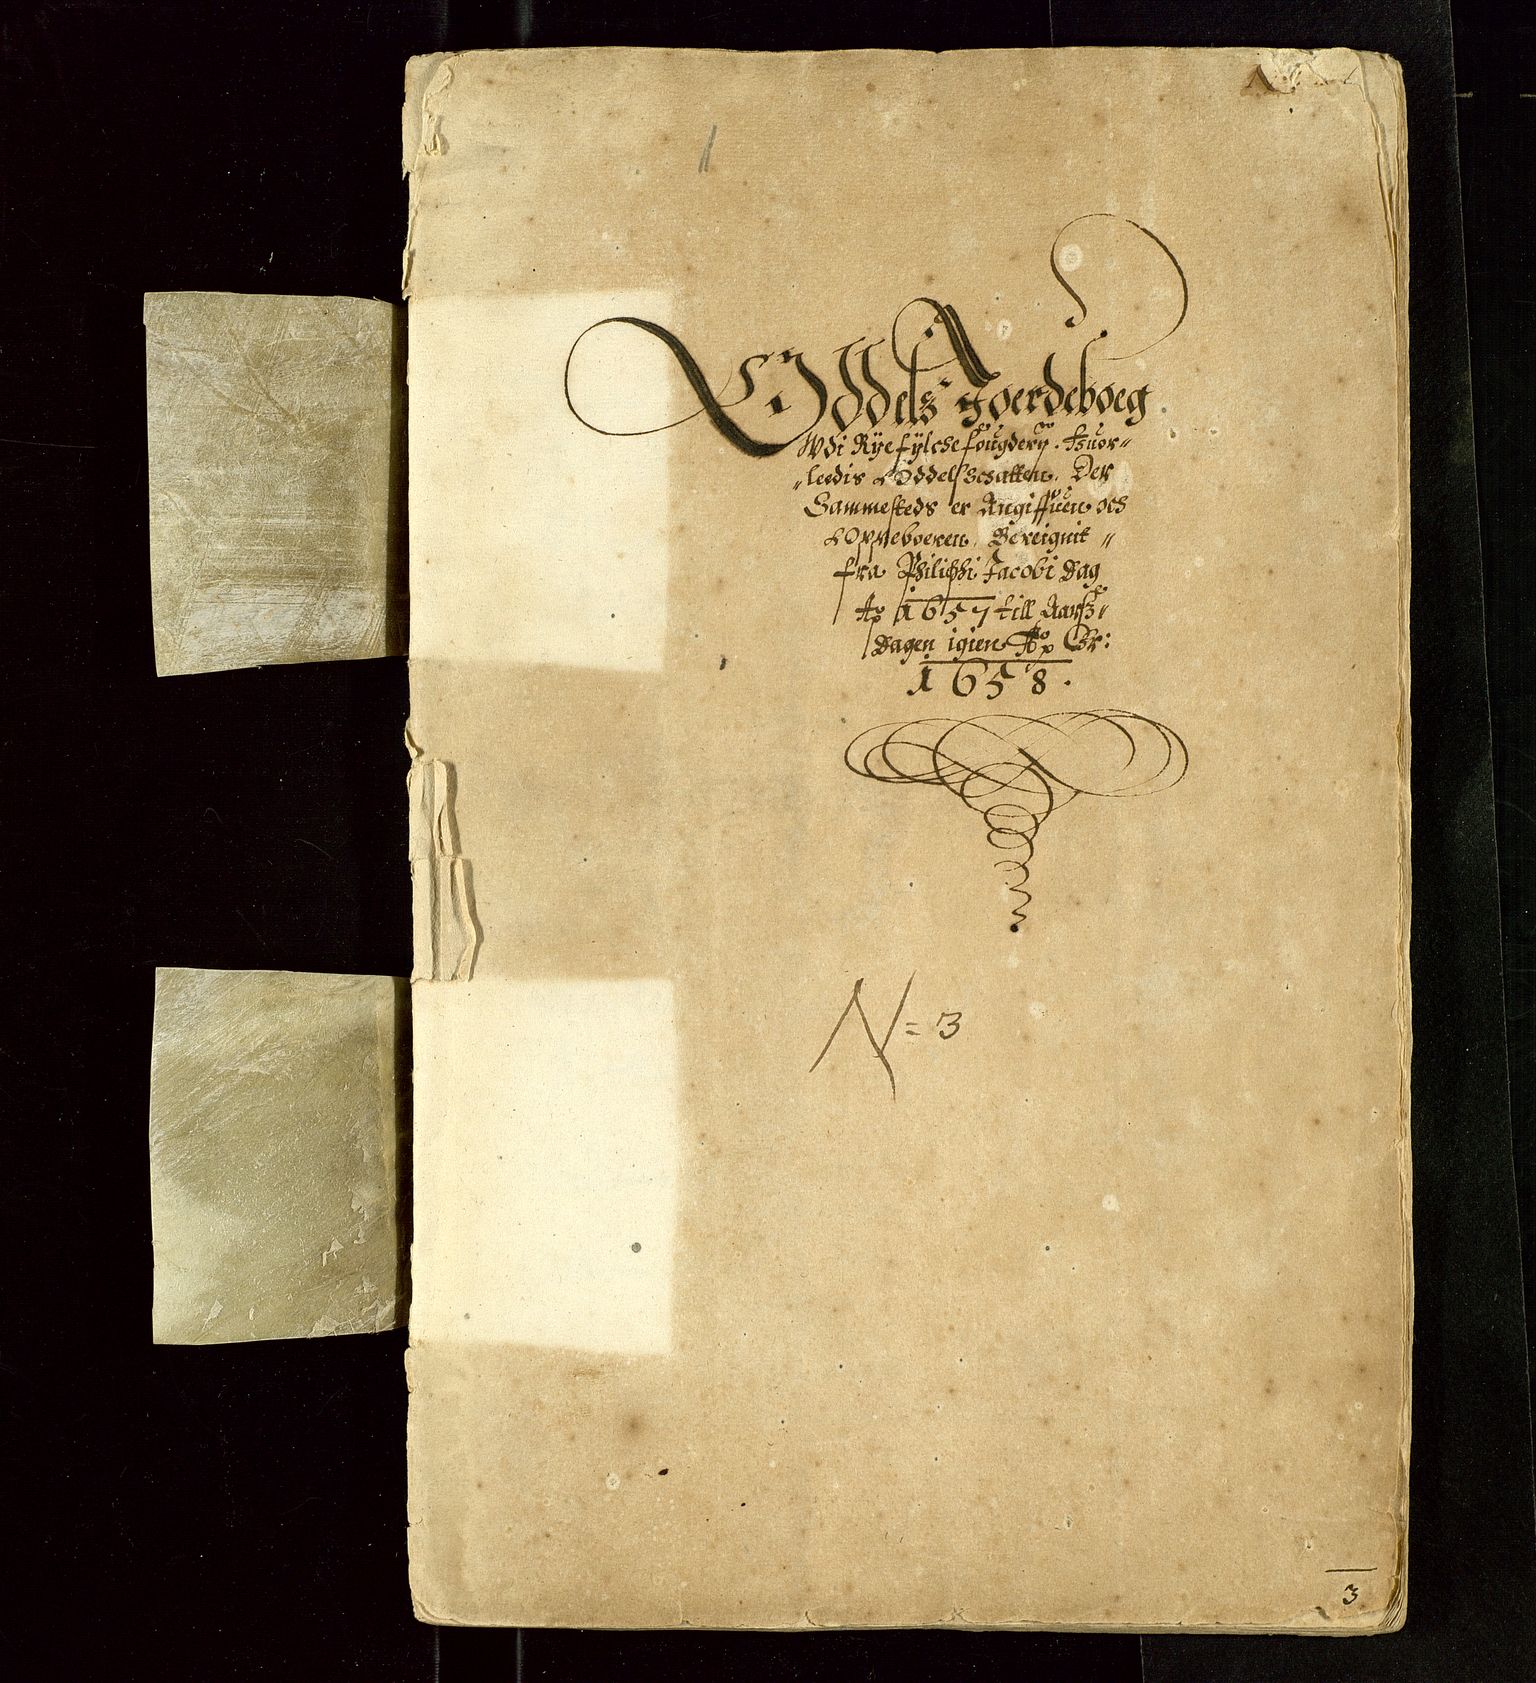 Oddels Joerdeboeg
Udi Ryefylche fougdery. Huor-
-leedis Oddelsschatten. Der
Sammesteds er Angiffuen och
Oppeboeren. Bereignit
fra Philippi Jacobi Dag
Ao 1657 till Aarsz-
Dagen igien Ao Er:
1658.
N=3
3